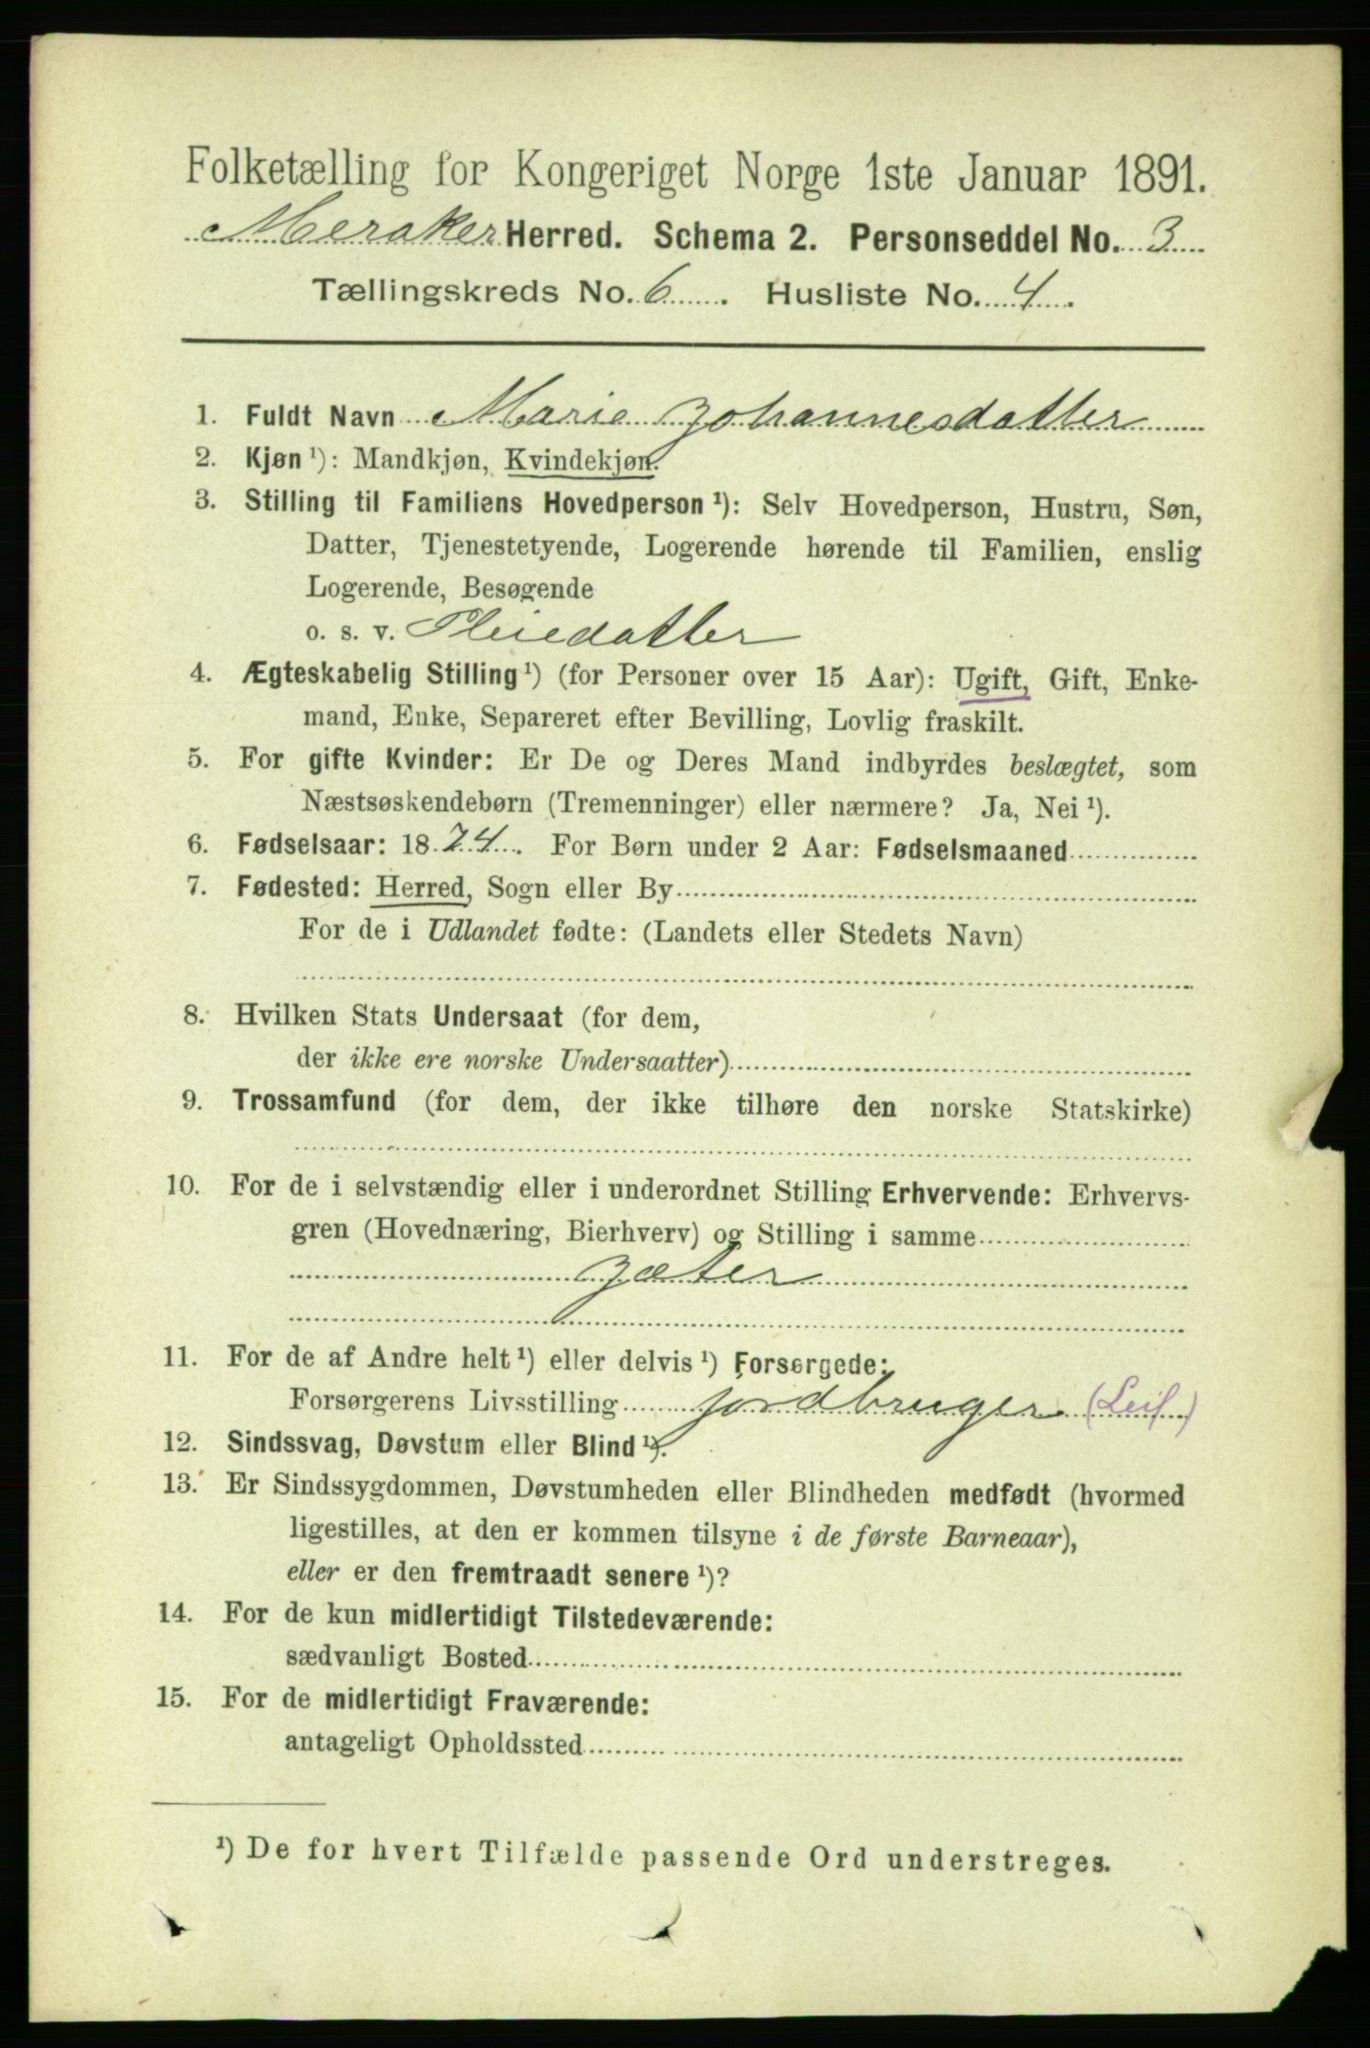 Folketælling for Kongeriget Norge 1ste Januar 1891.
Meraker Herred. Schema 2. Personseddel No. 3
Tællingskreds No. 6. Husliste No. 4.
1. Fuldt Navn Marie Johannesdatter
2. Kjøn ¹): Mandkjøn, Kvindekjøn.
3. Stilling til Familiens Hovedperson ¹): Selv Hovedperson, Hustru, Søn,
Datter, Tjenestetyende, Logerende hørende til Familien, enslig
Logerende, Besøgende
o. s. v. Pleiedatter
4. Ægteskabelig Stilling ¹) (for Personer over 15 Aar): Ugift, Gift, Enke-
mand, Enke, Separeret efter Bevilling, Lovlig fraskilt.
5. For gifte Kvinder: Er De og Deres Mand indbyrdes beslægtet, som
Næstsøskendebørn (Tremenninger) eller nærmere? Ja, Nei ¹).
6. Fødselsaar: 1874. For Børn under 2 Aar: Fødselsmaaned
7. Fødested: Herred, Sogn eller By
For de i Udlandet fødte: (Landets eller Stedets Navn)
8. Hvilken Stats Undersaat (for dem,
der ikke ere norske Undersaatter)
9. Trossamfund (for dem, der ikke tilhøre den norske Statskirke)
10. For de i selvstændig eller i underordnet Stilling Erhvervende: Erhvervs-
gren (Hovednæring, Bierhverv) og Stilling i samme
Jæter
11. For de af Andre helt ¹) eller delvis ¹) Forsørgede:
Forsørgerens Livsstilling jordbruger (Leil.)
12. Sindssvag, Døvstum eller Blind ¹).
13. Er Sindssygdommen, Døvstumheden eller Blindheden medfødt (hvormed
ligestilles, at den er kommen tilsyne i de første Barneaar),
eller er den fremtraadt senere ¹)?
14. For de kun midlertidigt Tilstedeværende:
sædvanligt Bosted
15. For de midlertidigt Fraværende:
antageligt Opholdssted
¹) De for hvert Tilfælde passende Ord understreges.